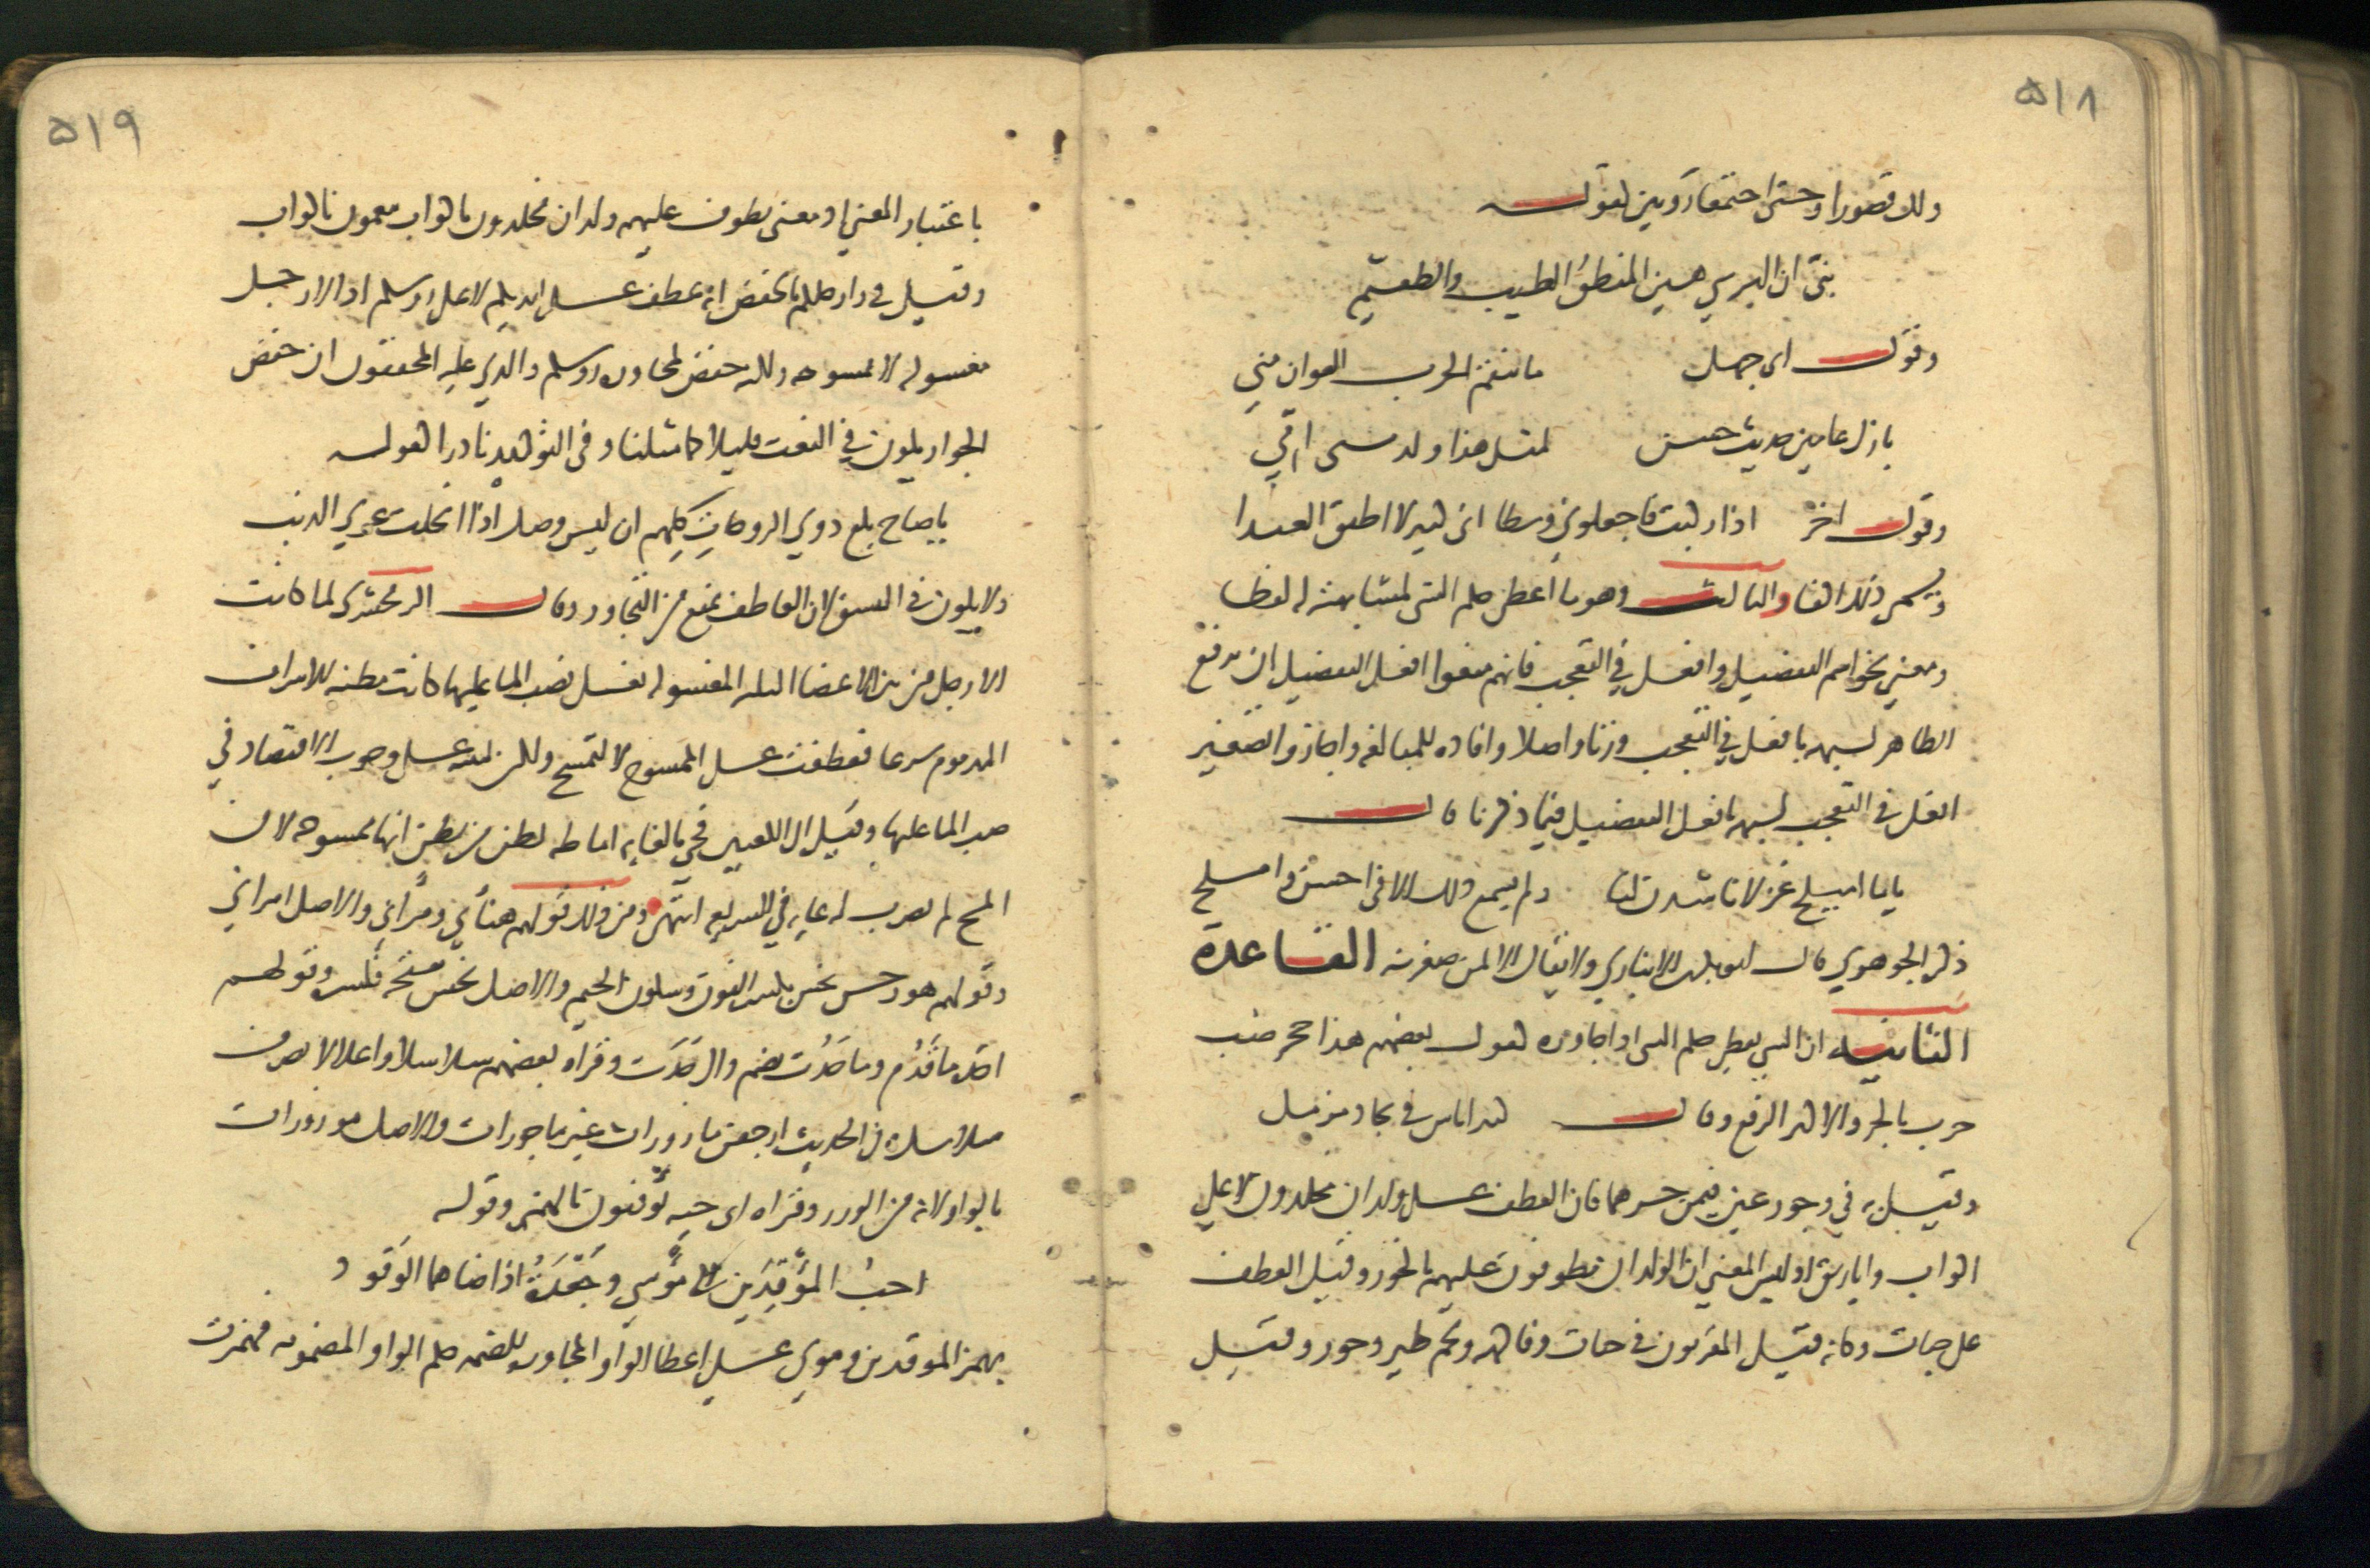 ٥١٨
ذلك قصورا وحتى اجتمعا رويين لقوله
بني ان البر شي هين المنطق الطيب والطعيم
وقول ابي جهل ما تنقم الحرب العوان مني
بازل عامين حديث سن لمثل هذا ولدتني امي
وقول اخر اذا ركبت فاجعلوني وسطا اني كبير لا اطيق العندا
ويسمى ذلك اكفا والثالث وهو ما اعطى حكم الشي لمشابهته له لفظا
ومعنى نحو اسم التفضيل وافعل في التعجب فانهم منعوا افعل التفضيل ان يرفع
الظاهر لشبهه بافعل في التعجب وزنا واصلا وافاده للمبالغه واجازوا تصغير
افعل في التعجب لشبهه بافعل التفضيل فيما ذكرنا قال
ياما اميلح غزلانا شدن لنا ولم يسمع ذلك الا في احسن واملح
ذكره الجوهري قال ابو بكر ابن الانباري ولا يقال الا لمن صغر سنه القاعدة
الثانيه ان الشي يعطى حكم الشي اذا جاوره كقول بعضهم هذا جحر ضب
خرب بالجر والاكثر الرفع وقال كبير اناس في بجاد مزمل
وقيل به في وحور عين فيمن جرهما فان العطف على ولدان مخلدون لا على
اكواب واباريق اذ ليس المعنى ان الولدان يطوفون عليهم بالحور وقيل العطف
على جنات وكانه قيل المقربون في جنات وفاكهه ولحم طير وحور وقيل
٥١٩
باعتبار المعنى اذ معنى يطوف عليهم ولدان مخلدون باكواب ينعمون باكواب
وقيل في وارجلكم بالخفض انه عطف على ايديكم لا على رؤسكم اذ الارجل
مغسوله لا ممسوحه ولكنه خفض لمجاوره رؤسكم والذي عليه المحققون ان خفض
الجوار يكون في النعت قليلا كما مثلنا وفي التوكيد نادرا كقوله
يا صاح بلغ ذوي الزوجات كلهم ان ليس وصل اذا انحلت عرى الذنب
ولا يكون في النسق لان العاطف يمنع من التجاور وقال الزمخشري لما كانت
الارجل من بين الاعضا الثلاثه المغسوله تغسل بصب الما عليها كانت مظنه للاسراف
المذموم شرعا فعطفت على الممسوح لا لتمسح ولكن لينبه على وجوب الاقتصاد في
صب الما عليها وقيل الى الكعبين فجي بالغايه اماطه لظن من يظن انها ممسوحه لان
المسح لم يضرب له غايه في الشريعه انتهى ومن ذلك قولهم هناني ومراني والاصل امراني
وقولهم هو رجس نجس بكسر النون وسكون الجيم والاصل نجس بفتحه فكسره وقولهم
اخذه ما قدم وما حدث بضم دال حدث وقراه بعضهم سلاسلا واغلالا بصرف
سلاسل وفي الحديث ارجعن مازورات غير ماجورات والاصل موزورات
بالواو لانه من الوزر وقراه ابي حيه يؤقنون بالهمز وقوله
احب المؤقدين الى مؤسي وجعدة اذ اضاهما الوقود
بهمز الموقدين وموسى على اعطا الواو المجاوره للضمه حكم الواو المضمومه فهمزت